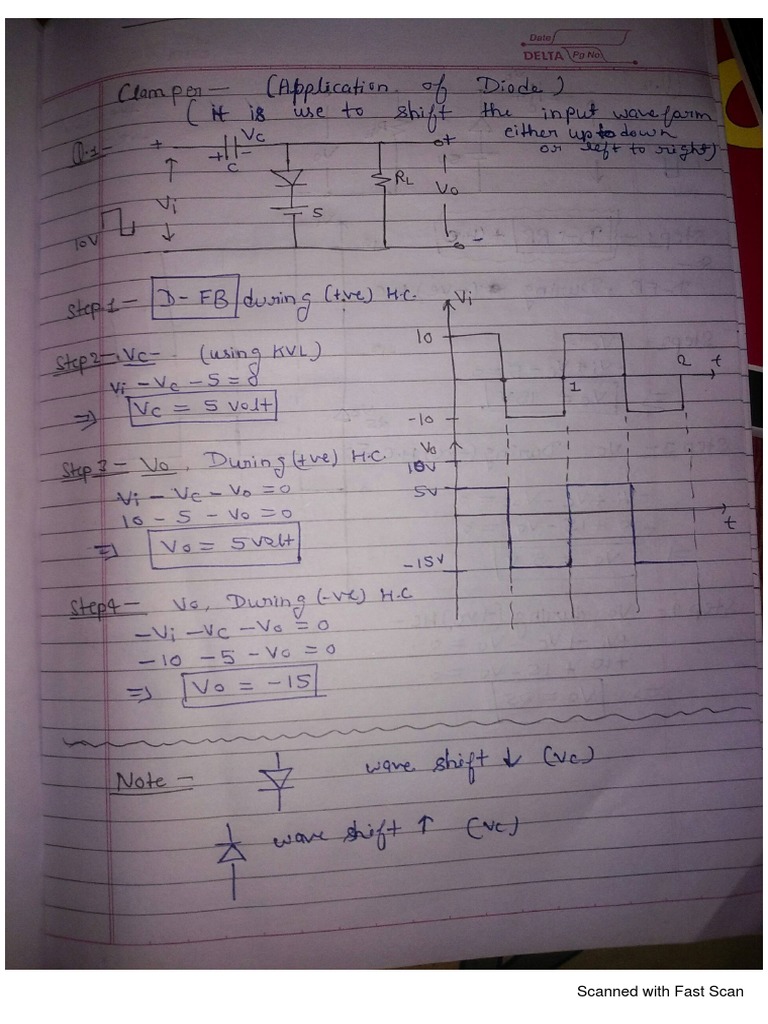 Date
DELTA Pg No
Clamper— (Application of Diode)
(it is use to shift the input waveform
either up to down
or left to right)
Q.1-
+
Vc
+ -
C
Vi
10V
5
RL
o+
Vo
o -
Step 1 - D- FB during (+ve) H.C.
Step 2 - Vc - (using KVL)
Vi - Vc - 5 = 0
⇒ Vc = 5 volt
Step 3 - Vo, During (+ve) H.C
Vi - Vc - Vo = 0
10 - 5 - Vo = 0
⇒ Vo = 5 volt
Step 4 - Vo, During (-ve) H.C
-Vi - Vc - Vo = 0
-10 - 5 - Vo = 0
⇒ Vo = -15
Vi
10
1
2
t
-10
Vo
10V
5V
t
-15V
Note -
wave shift ↓ (Vc)
wave shift ↑ (Vc)
Scanned with Fast Scan